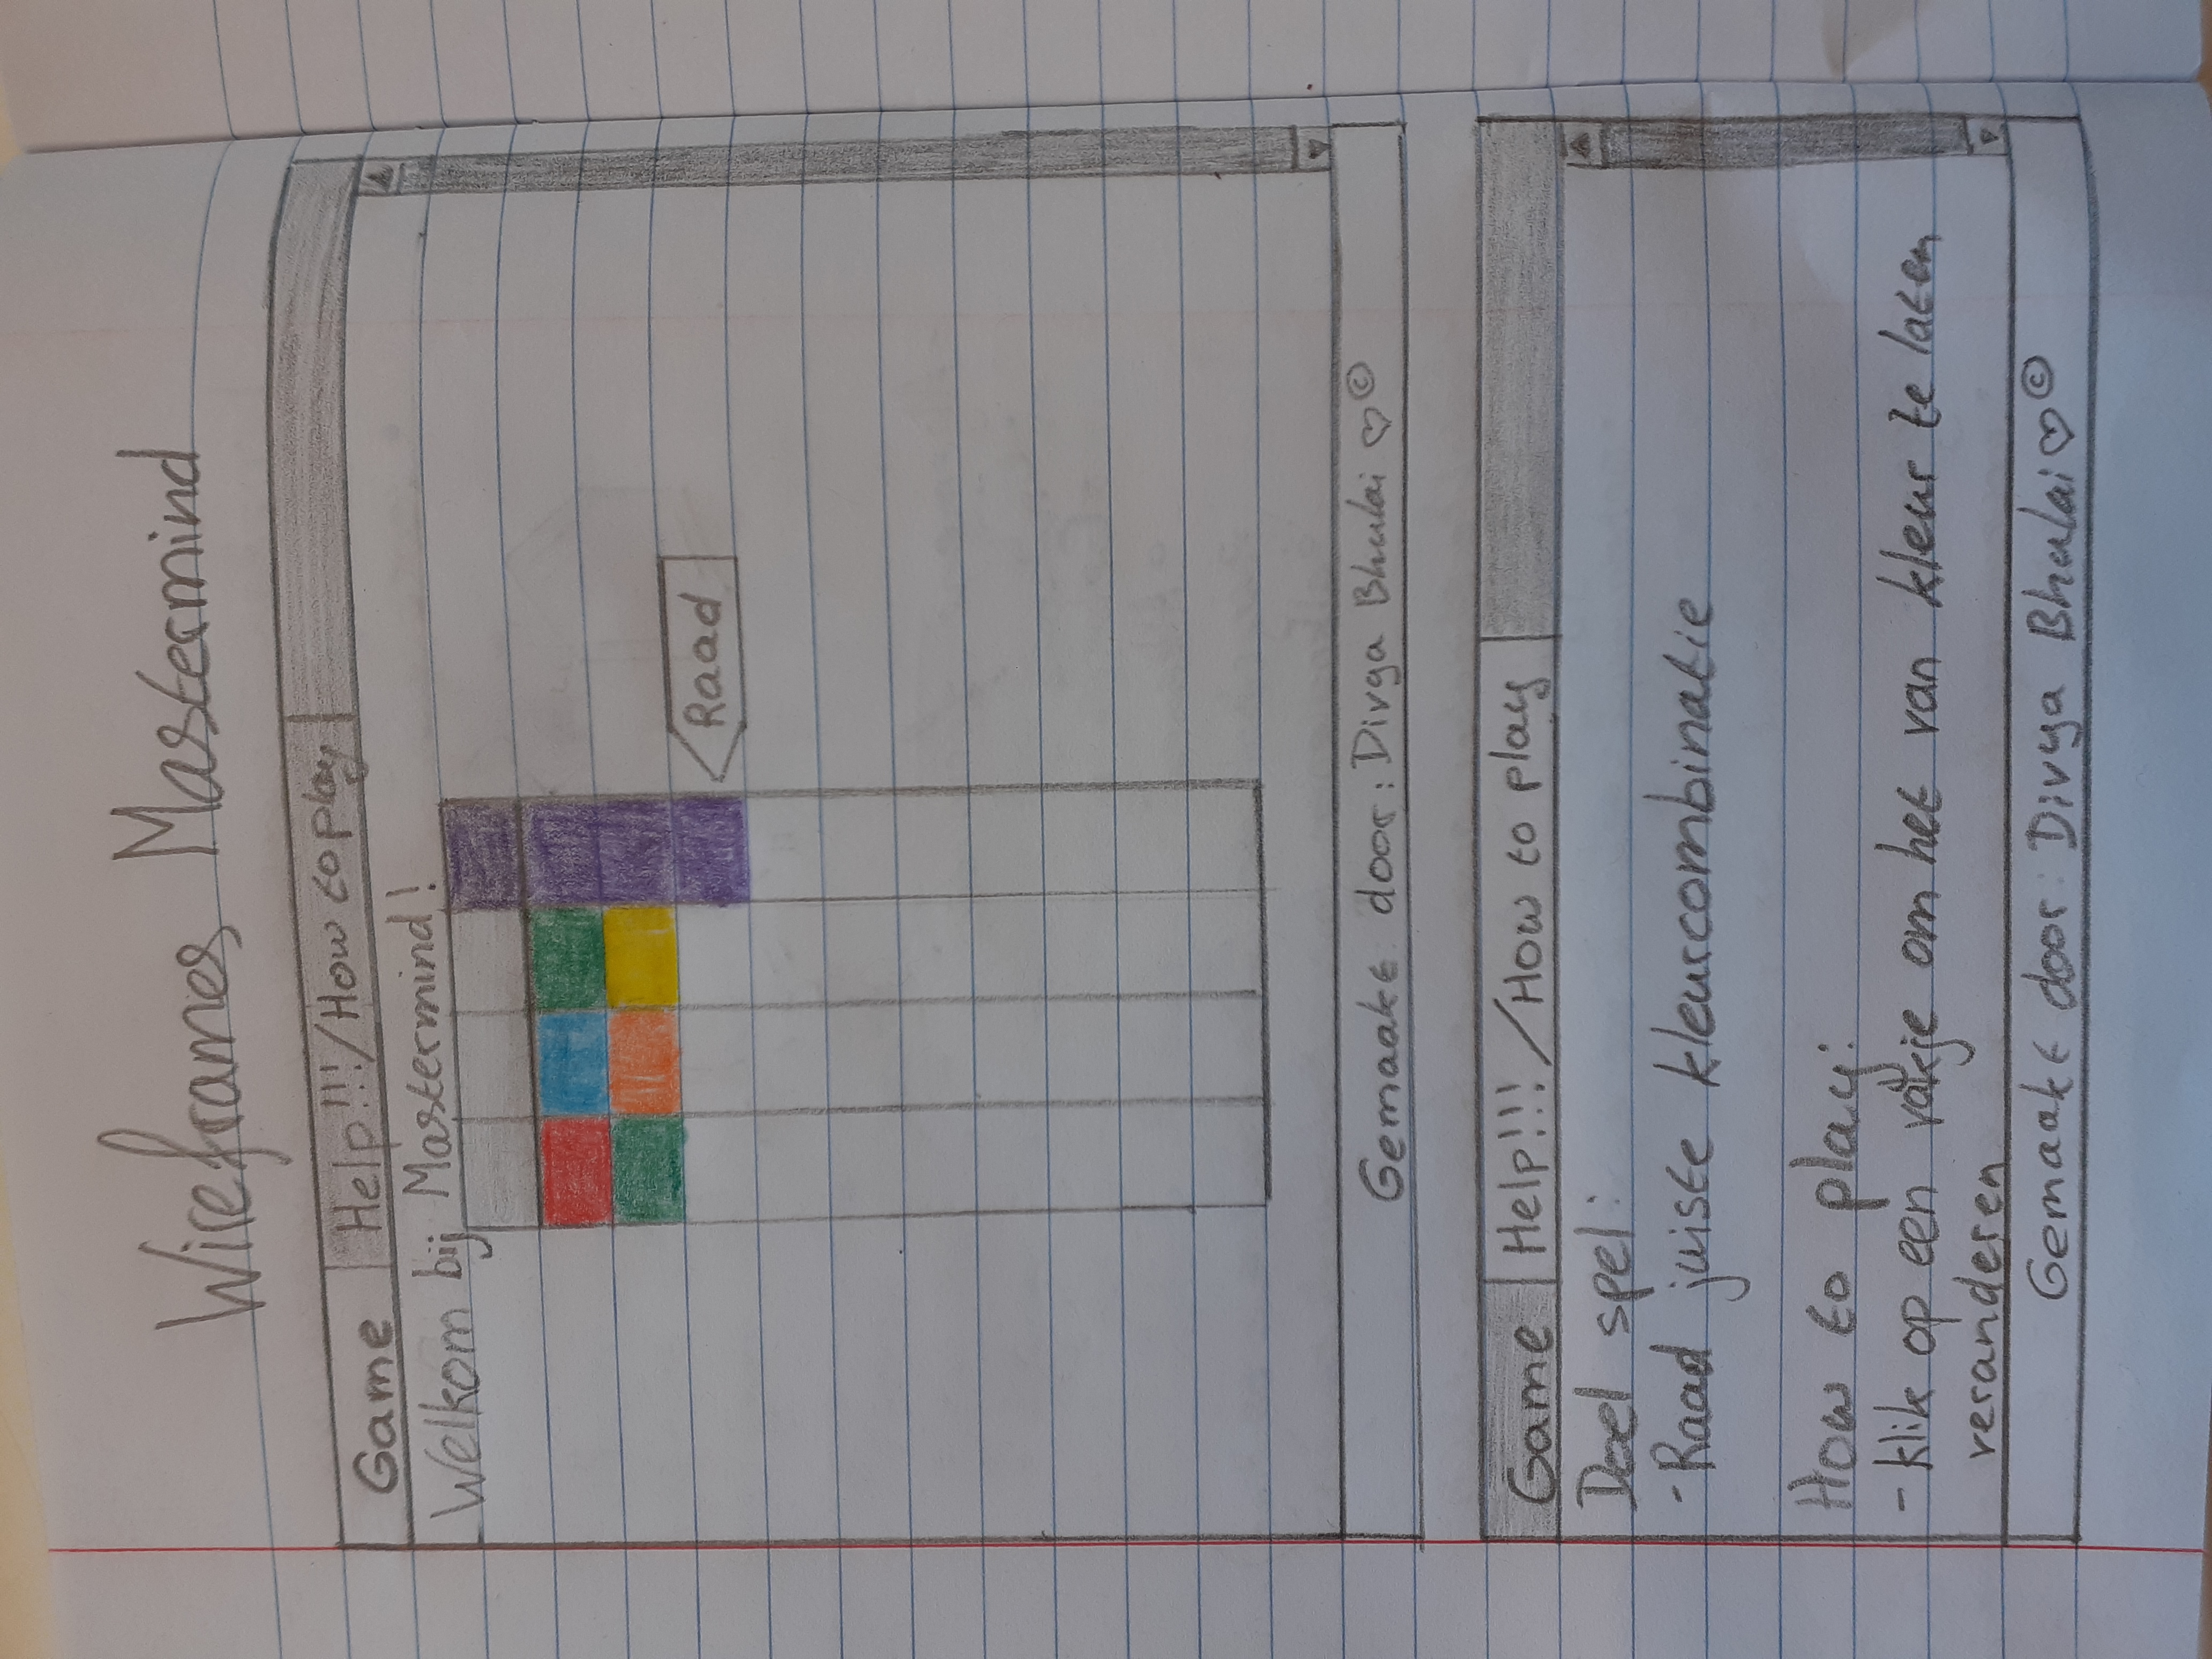 Wireframes Mastermind
Game Help!!!/How to play
Welkom bij Mastermind!
Raad
Gemaakt door: Divya Bhulai ♡©
Game Help!!!/How to play
Doel spel:
-Raad juiste kleurcombinatie
How to play:
-klik op een vakje om het van kleur te laten
veranderen
Gemaakt door: Divya Bhulai ♡©